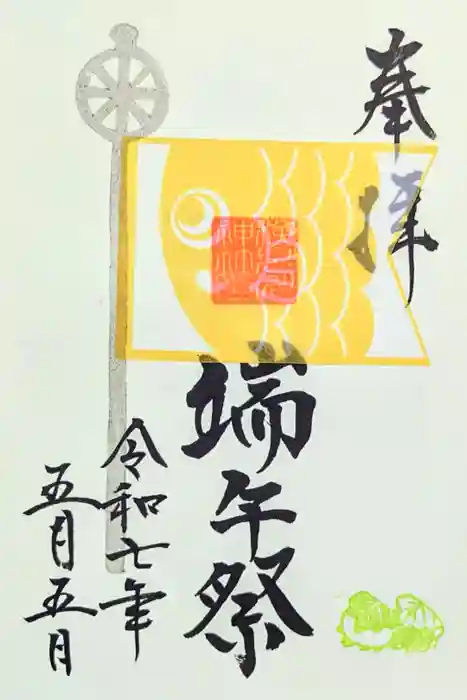 奉拝
端午祭
令和七年
五月五日